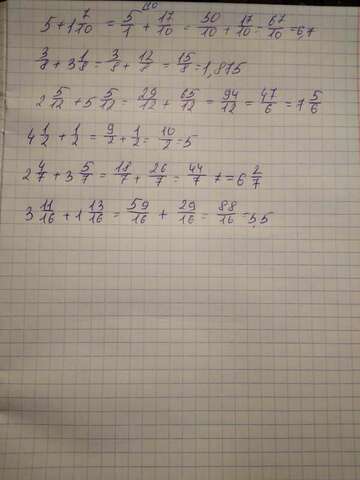 5 + 1 7/10 = 5/1 + 17/10 = 50/10 + 17/10 = 67/10 = 6,7
3/8 + 3 1/8 = 3/8 + 12/8 = 15/8 = 1,875
2 5/12 + 5 5/12 = 29/12 + 65/12 = 94/12 = 47/6 = 7 5/6
4 1/2 + 1/2 = 9/2 + 1/2 = 10/2 = 5
2 4/7 + 3 5/7 = 18/7 + 26/7 = 44/7 = 6 2/7
3 11/16 + 1 13/16 = 59/16 + 29/16 = 88/16 = 5,5